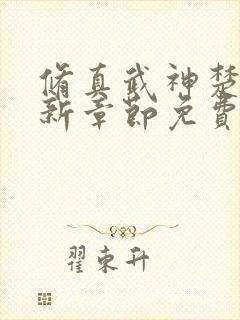 脩真武神楚
新章節免費
翟東升